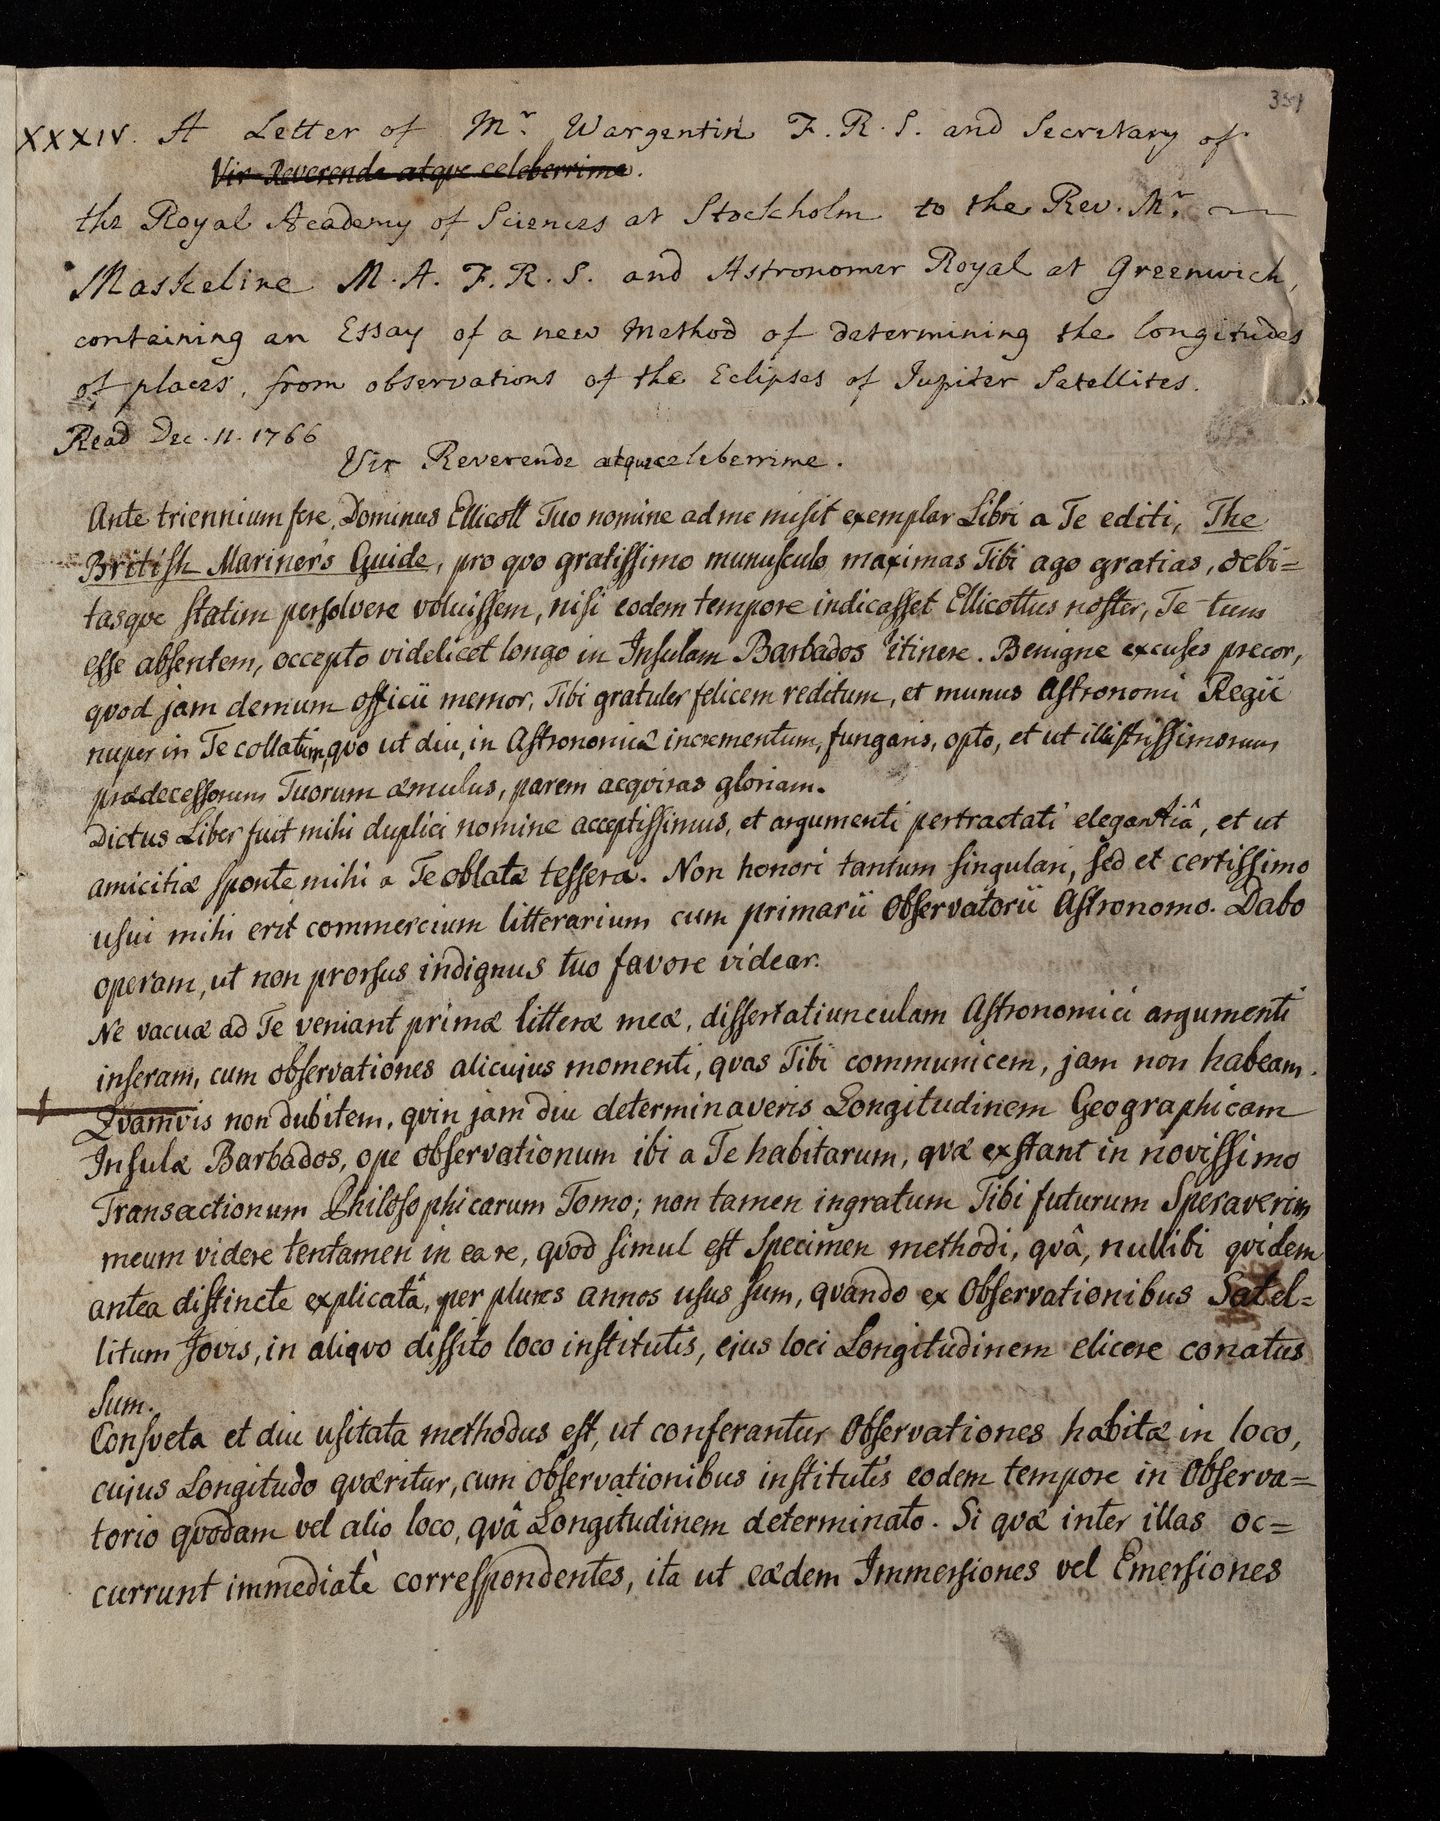 351
XXXIV. A Letter of Mr. Wargentin F.R.S. and Secretary of
Vir Reverende atqve celeberrime.
the Royal Academy of Sciences at Stockholm to the Rev. Mr.
Maskeline M.A. F.R.S. and Astronomer Royal at Greenwich,
containing an Essay of a new Method of determining the longitudes
of places, from observations of the Eclipses of Jupiter Satellites.
Read Dec. 11. 1766
Vir Reverende atque celeberrime.
Ante triennium fere, Dominus Ellicott Tuo nomine ad me misit exemplar Libri a Te editi, The
British Mariner's Guide, pro qvo gratissimo munusculo maximas Tibi ago gratias, debi=
tasqve statim persolvere voluissem, nisi eodem tempore indicasset Ellicottus noster, Te tum
esse absentem, occepto videlicet longo in Insulam Barbados itinere. Benigne excuses precor,
qvod jam demum officii memor, Tibi gratuler felicem reditum, et munus Astronomi Regii
nuper in Te collatum, qvo ut diu, in Astronomiæ incrementum, fungaris, opto, et ut illustrissimorum
prædecessorum Tuorum æmulus, parem acqviras gloriam.
Dictus Liber fuit mihi duplici nomine acceptissimus, et argumenti pertractati elegantiâ, et ut
amicitiæ sponte mihi a Te oblatæ tessera. Non honori tantum singulari, sed et certissimo
usui mihi erit commercium litterarium cum primarii Observatorii Astronomo. Dabo
operam, ut non prorsus indignus tuo favore videar.
Ne vacuæ ad Te veniant primæ litteræ meæ, dissertatiunculam Astronomici argumenti
inseram, cum observationes alicujus momenti, qvas Tibi communicem, jam non habeam.
Qvamvis non dubitem, qvin jam diu determinaveris Longitudinem Geographicam
Insulæ Barbados, ope observationum ibi a Te habitarum, qvæ exstant in novissimo
Transactionum Philosophicarum Tomo; non tamen ingratum Tibi futurum speraverim
meum videre tentamen in ea re, qvod simul est specimen methodi, qvâ, nullibi qvidem
antea distincte explicatâ, per plures annos usus sum, qvando ex Observationibus Satel=
litum Jovis, in aliqvo dissito loco institutis, ejus loci Longitudinem elicere conatus
sum.
Consveta et diu usitata methodus est, ut conferantur Observationes habitæ in loco,
cujus Longitudo qværitur, cum observationibus institutis eodem tempore in Observa=
torio qvodam vel alio loco, qvâ Longitudinem determinato. Si qvæ inter illas oc=
currunt immediatè correspondentes, ita ut eædem Immersiones vel Emersiones